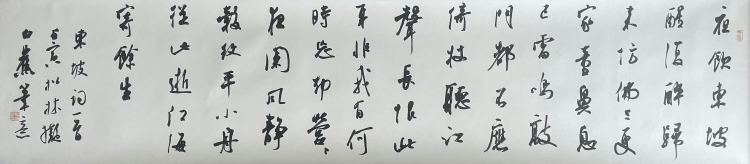 夜飲東坡
醒復醉歸
来仿佛三更
家童鼻息
已雷鳴敲
門都不應
倚杖聽江
聲長恨此
身非我有何
時忘却營〻
夜闌風靜
縠紋平小舟
從此逝江海
寄餘生
東坡詞一首
擬
白蕉筆意